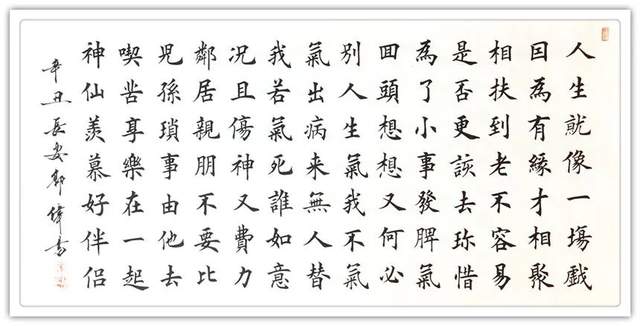 人生就像一場戲
囙為有緣才相聚
相扶到老不容易
是否更該去珎惜
為了小事發脾氣
囬頭想想又何必
别人生氣我不氣
氣出病来無人替
我若氣死誰如意
况且傷神又費力
鄰居親朋不要比
兒孫瑣事由他去
喫苦享樂在一起
神仙羨慕好伴侣
辛丑長安 書